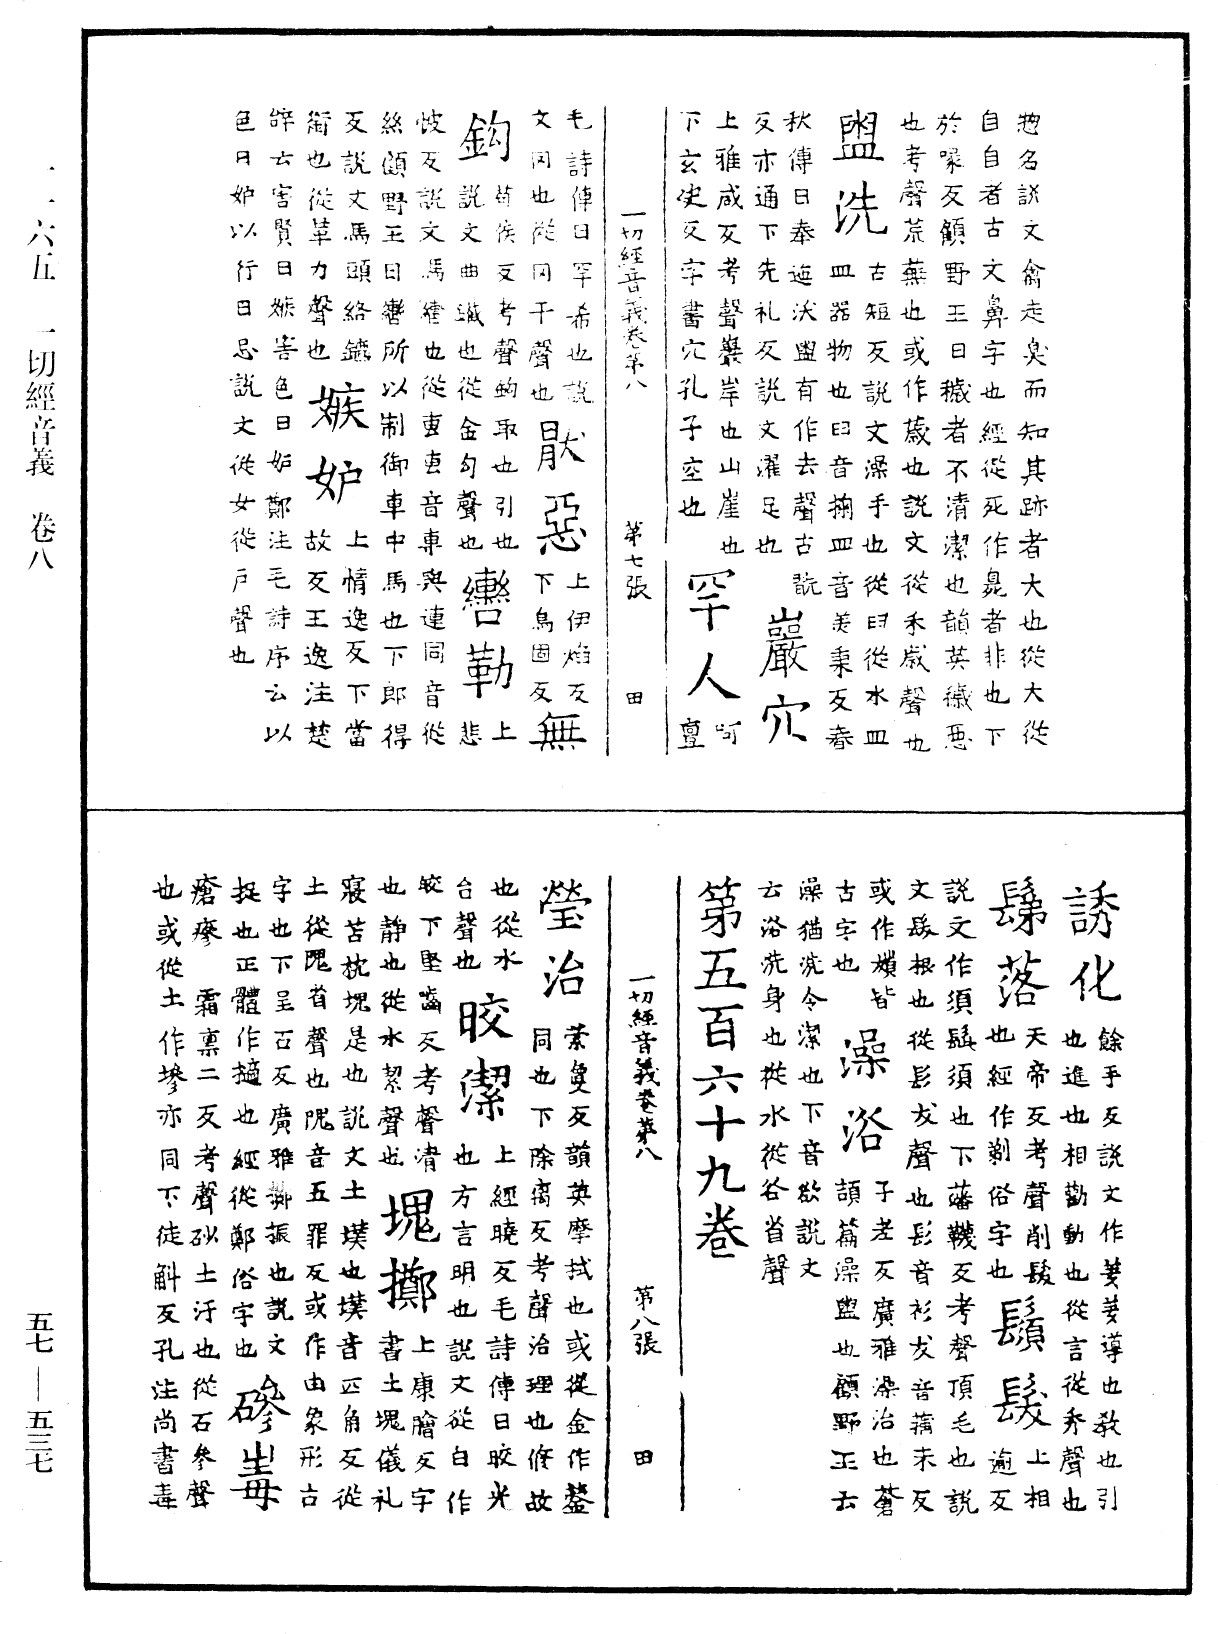 惣名說文禽走臭而知其跡者犬也從犬從
自自者古文鼻字也經從死作臰者非也下
於喙反顧野王曰穢者不清潔也韻英穢惡
也考聲荒蕪也或作薉也說文從禾歲聲也
盥洗 古短反說文澡手也從臼從水皿
皿器物也臼音掬皿音美秉反春
秋傳曰奉迆沃盥有作去聲古翫
反亦通下先礼反說文濯足也 巖穴
上雅咸反考聲巖岸也山崖也
下玄史反字書穴孔子空也 罕人 呵亶
一切經音義卷第八 第七張 田
毛詩傳曰罕希也說
文罔也從罔干聲也 猒惡 上伊焰反下烏固反 無
鈎 苟侯反考聲鈎取也引也
說文曲鐵也從金勾聲也 轡勒 上悲
媚反說文馬縻也從叀叀音車與連同音從
絲顧野王曰轡所以制御車中馬也下郎得
反說文馬頭絡鏕
銜也從革力聲也 嫉妒 上情逸反下當
故反王逸注楚
辭云害賢曰嫉害色曰妒鄭注毛詩序云以
色曰妒以行曰忌說文從女從戶聲也
誘化 餘手反說文作羑羑導也教也引
也進也相勸動也從言從秀聲也
髰落 天帝反考聲削髮
也經作剃俗字也 鬚髮 上相逾反
說文作須鬚須也下蕃韈反考聲頂毛也說
文髮根也從髟犮聲也髟音衫犮音蒱末反
或作𩑶皆
古字也 澡浴 子老反廣雅澡治也蒼
頡篇澡盥也顧野王云
澡猶洗令潔也下音欲說文
云浴洗身也從水從谷省聲
第五百六十九卷
一切經音義卷第八 第八張 田
瑩治 縈夐反韻英摩拭也或從金作鎣
同也下除离反考聲治理也修故
也從水
台聲也 皎潔 上經曉反毛詩傳曰皎光
也方言明也說文從白作
皎下堅齧反考聲清
也靜也從水絜聲也 塊擲 上康膾反字
書土塊儀礼
寢苫枕塊是也說文土墣也墣音匹角反從
土從隗省聲也隗音五罪反或作由象形古
字也下呈石反廣雅擲振也說文
投也正體作擿也經從鄭俗字也 磣毒
瘡瘮霜稟二反考聲砂土汙也從石參聲
也或從土作墋亦同下徒斛反孔注尚書毒
一一六五 一切經音義 卷八
五七——五三七